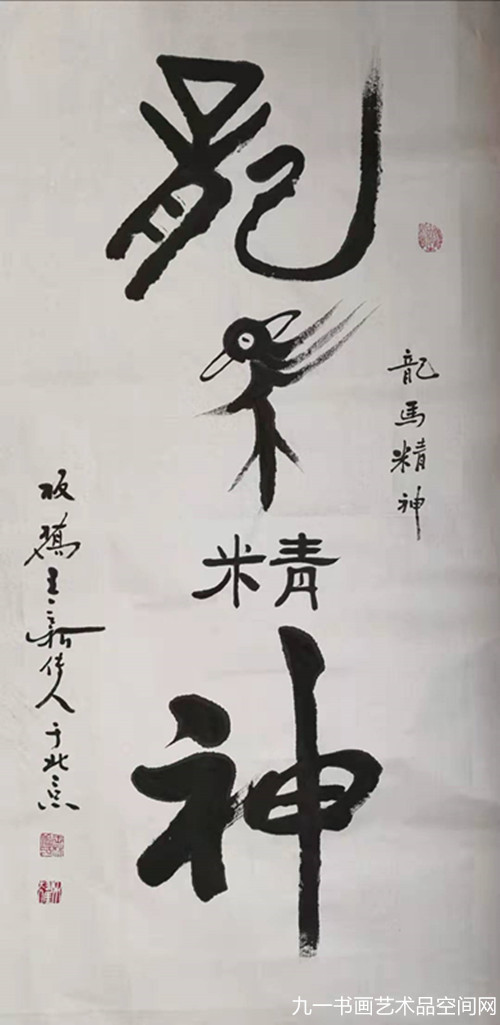 龍馬精神
龍馬精神
板橋王新传人于北京
九一书画艺术品空间网